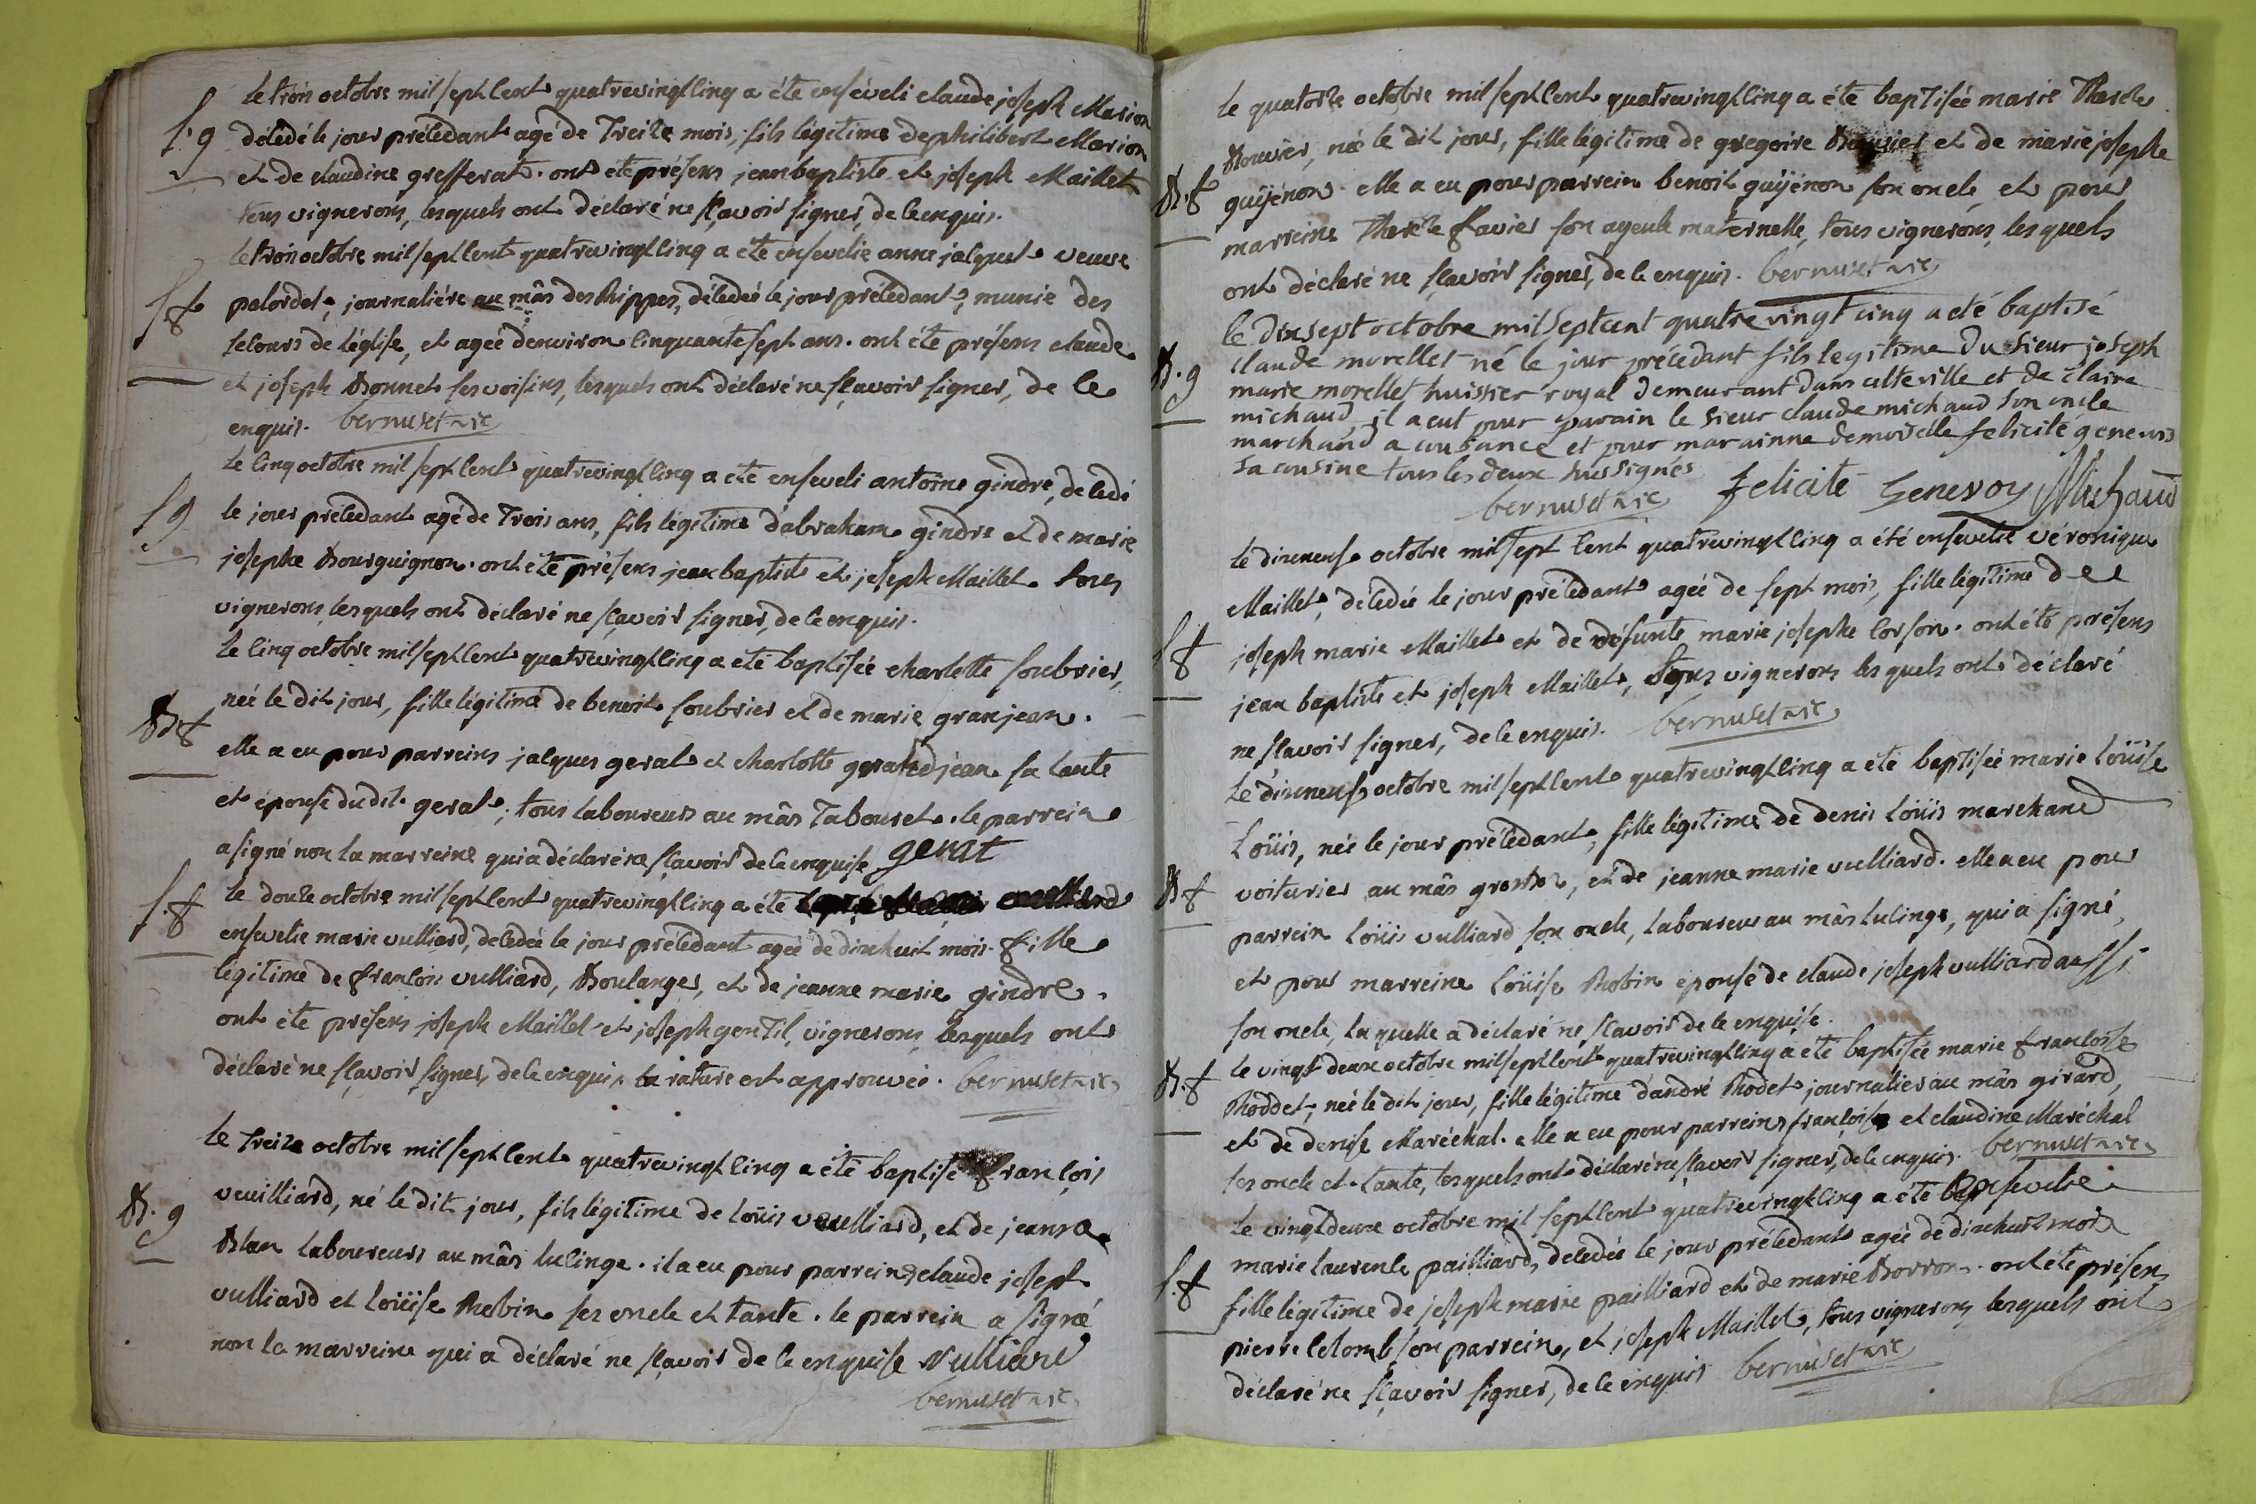 le trois octobre mil sept cent quatrevingt cinq a été enséveli claude joseph Marion
S. g décédé le jour précédant agé de treize mois, fils légitime de philibert Marion
et de claudine grefferat. ont été présens jean baptiste et joseph Maillet
tous vignerons, lesquels ont déclaré ne sçavoir signer, de ce enquis.
le trois octobre mil sept cent quatrevingt cinq a été ensevelie anne jacquet veuve
S. f pelordet, journaliére au mâs des Rippes, décédée le jour précédant, munie des
secours de l'église, et agée d'environ cinquante sept ans. ont été présens claude
et joseph Bonnet ses voisins, lesquels ont déclaré ne sçavoir signer, de ce
enquis. bernuset vic
le cinq octobre mil sept cent quatrevingt cinq a été enseveli antoine gindre, décédé
S g le jour précédant agé de trois ans, fils légitime d'abraham gindre et de marie
josephe Bourguignon. ont été présens jean baptiste et joseph Maillet tous
vignerons, lesquels ont déclaré ne sçavoir signer, de ce enquis.
le cinq octobre mil sept cent quatrevingt cinq a été baptisée charlotte soubrier,
née le dit jour, fille légitime de benoit soubrier et de marie granjean.
B. f elle a eu pour parreins jacques gerat et charlotte grandjean sa tante
et épouse du dit gerat, tous laboureurs au mâs Tabouret. le parrein
a signé non la marreine qui a déclaré ne sçavoir de ce enquise gerat
S. f le douze octobre mil sept cent quatrevingt cinq a été
ensevelie marie vulliard, décédée le jour précédant agée de dix huit mois fille
légitime de françois vulliard, Boulanger, et de jeanne marie gindre.
ont été présens joseph Maillet et joseph gentil, vignerons, lesquels ont
déclaré ne sçavoir signer, de ce enquis. la rature est approuvée. bernuset vic
le treize octobre mil sept cent quatrevingt cinq a été baptisé françois
B. g veuilliard, né le dit jour, fils légitime de loüis vuulliard, et de jeanne
Blan laboureurs au mâs lucinge. il a eu pour parreins claude joseph
vulliard et loüise Robin ses oncle et tante. le parrein a signé
non la marreine qui a déclaré ne sçavoir de ce enquise Vulliard
bernuset vic
le quatorze octobre mil sept cent quatrevingt cinq a été baptisée marie Therese
Bouvier, née le dit jour, fille légitime de gregoire Bouvier et de marie josephe
B. f guÿénon. elle a eu pour parrein benoit guÿénon son oncle, et pour
marreine Therese flavier son ayeule maternelle, tous vignerons, lesquels
ont déclaré ne sçavoir signer, de ce enquis. bernuset vic
le dix sept octobre mil sept cent quatre vingt cinq a eté baptisé
B. g claude morellet né le jour précédant fils legitime du sieur joseph
marie morellet huissier royal demeurant dans cette ville et de claire
michaud, il a eut pour parain le sieur claude michaud son oncle
marchand a coubance et pour marainne demoiselle felicité genevois
sa cousine tous les deux sussignes
bernuset vic felicité Genevoy Michaud
le dixneuf octobre mil sept cent quatrevingt cinq a été ensevelie véronique
Maillet, décédée le jour précédant agée de sept mois, fille légitime de
S f joseph marie Maillet et de défunte marie josephe corson. ont été présens
jean baptiste et joseph Maillet, tous vignerons lesquels ont déclaré
ne sçavoir signer, de ce enquis. bernuset vic
le dixneuf octobre mil sept cent quatrevingt cinq a été baptisée marie loüise
loüis, née le jour précédant, fille légitime de denis loüis marchand
B f voiturier au mâs grostor, et de jeanne marie vulliard. elle a eu pour
parrein loüis vulliard son oncle, laboureur au mâs lucinge, qui a signé,
et pour marreine loüise Robin épouse de claude joseph vulliard aussi
son oncle, laquelle a déclaré ne sçavoir de ce enquise.
B. f le vingt deux octobre mil sept cent quatrevingt cinq a été baptisée marie françoise
Roddet, née le dit jour, fille légitime d'andré Rodet journalier au mâs girard,
et de denise Maréchal. elle a eu pour parreins françois et claudine Maréchal
ses oncle et tante, lesquels ont déclaré ne sçavoir signer, de ce enquis. bernuset vic
le vingt deux octobre mil sept cent quatrevingt cinq a été ensevelie
marie laurence pailliard, décédée le jour précédant agée de dix huit mois
S. f fille légitime de joseph marie pailliard et de marie Borron. ont été présens
pierre colomb son parrein, et joseph Maillet, tous vignerons lesquels ont
déclaré ne sçavoir signer, de ce enquis bernuset vic